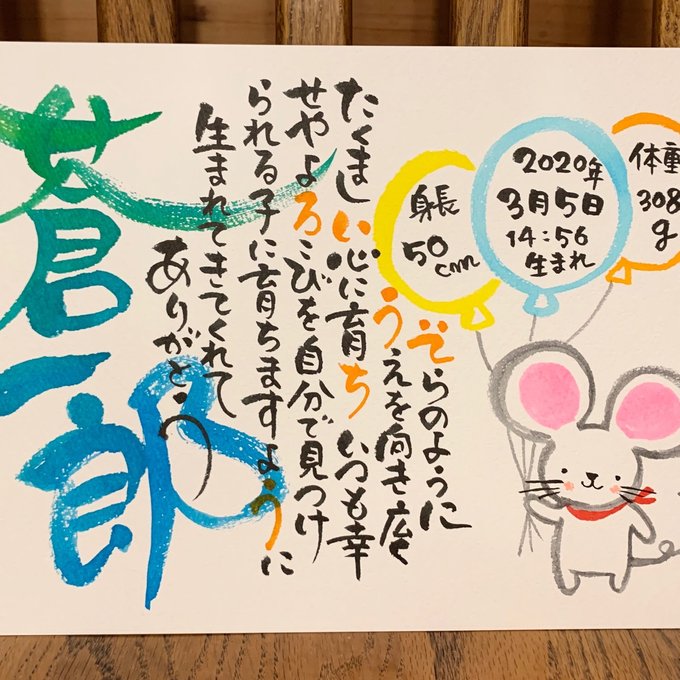 体重
308
g
2020年
3月5日
14:56
生まれ
身長
50cm
そらのように
うえを向き広く
たくましい心に育ち いつも幸
せやよろこびを自分で見つけ
られる子に育ちますように
生まれてきてくれて
ありがとう
蒼一郎